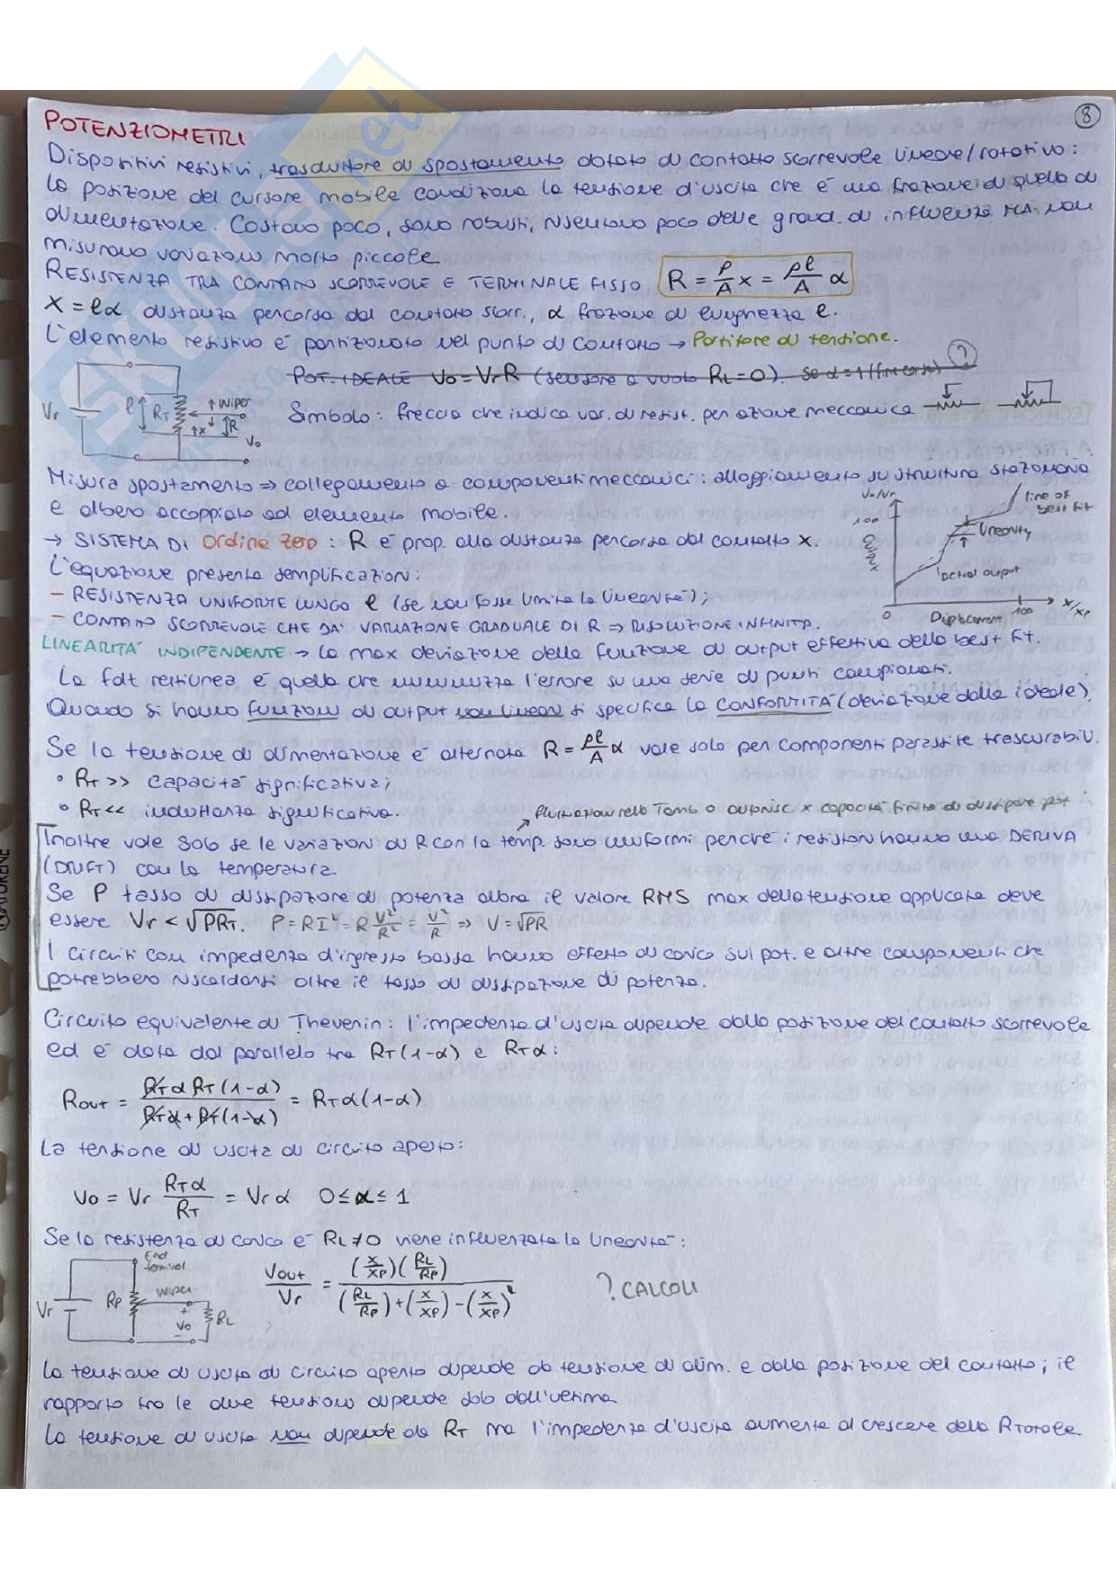 8
POTENZIOMETRI
Dispositivi resistivi, trasduttore di spostamento dotato di contatto scorrevole lineare/rotativo:
la posizione del cursore mobile condiziona la tensione d'uscita che è una frazione di quella di
alimentazione. Costano poco, sono robusti, risentono poco delle grand. di influenza MA non
misurano variazioni molto piccole.
RESISTENZA TRA CONTATTO SCORREVOLE E TERMINALE FISSO R = ρ/A x = ρl/A α
X = lα distanza percorsa dal contatto scorr., α frazione di lunghezza l.
L'elemento resistivo è partizionato nel punto di contatto → Partitore di tensione.
POT. IDEALE Vo = VrR (sensore a vuoto RL=0). se α=1 (fine corsa) ?
Vr l RT Wiper x R Vo
Simbolo: freccia che indica var. di resist. per azione meccanica
Misura spostamento ⇒ collegamento a componenti meccanici: alloggiamento su struttura stazionaria
e albero accoppiato ad elemento mobile.
Vo/Vr 100 Output line of best fit Linearity Actual output 0 Displacement 100 x/xp
→ SISTEMA DI Ordine Zero: R è prop. alla distanza percorsa dal contatto x.
L'equazione presenta semplificazioni:
- RESISTENZA UNIFORME LUNGO l (se non fosse limita la linearità);
- CONTATTO SCORREVOLE CHE DA' VARIAZIONE GRADUALE DI R ⇒ RISOLUZIONE INFINITA.
LINEARITÀ INDIPENDENTE → la max deviazione della funzione di output effettiva dalla best fit.
La fdt rettilinea è quella che minimizza l'errore su una serie di punti campionati.
Quando si hanno funzioni di output non lineari si specifica la CONFORMITÀ (deviazione dalla ideale).
Se la tensione di alimentazione è alternata R = ρl/A α vale solo per componenti parassite trascurabili.
• RT >> capacità significativa;
• RT << induttanza significativa.
Inoltre vale solo se le variazioni di R con la temp. sono uniformi perché i resistori hanno una DERIVA
(DRIFT) con la temperatura.
Se P tasso di dissipazione di potenza allora il valore RMS max della tensione applicata deve
essere Vr < √PRT. P = RI² = R V²/R² = V²/R ⇒ V = √PR
I circuiti con impedenza d'ingresso bassa hanno effetto di carico sul pot. e altre componenti che
potrebbero riscaldarsi oltre il tasso di dissipazione di potenza.
Circuito equivalente di Thevenin: l'impedenza d'uscita dipende dalla posizione del contatto scorrevole
ed è data dal parallelo tra RT(1-α) e RTα:
Rout = RTα RT(1-α) / RTα + RT(1-α) = RTα(1-α)
La tensione di uscita di circuito aperto:
Vo = Vr RTα/RT = Vrα 0≤α≤1
Se la resistenza di carico è RL≠0 viene influenzata la linearità:
Vr RP End terminal Wiper + Vo - RL
Vout/Vr = (x/xp)(RL/RP) / (RL/RP)+(x/xp)-(x/xp)² ? CALCOLI
La tensione di uscita di circuito aperto dipende da tensione di alim. e dalla posizione del contatto; il
rapporto tra le due tensioni dipende solo dall'ultima.
La tensione di uscita non dipende da RT ma l'impedenza d'uscita aumenta al crescere della RTotale.